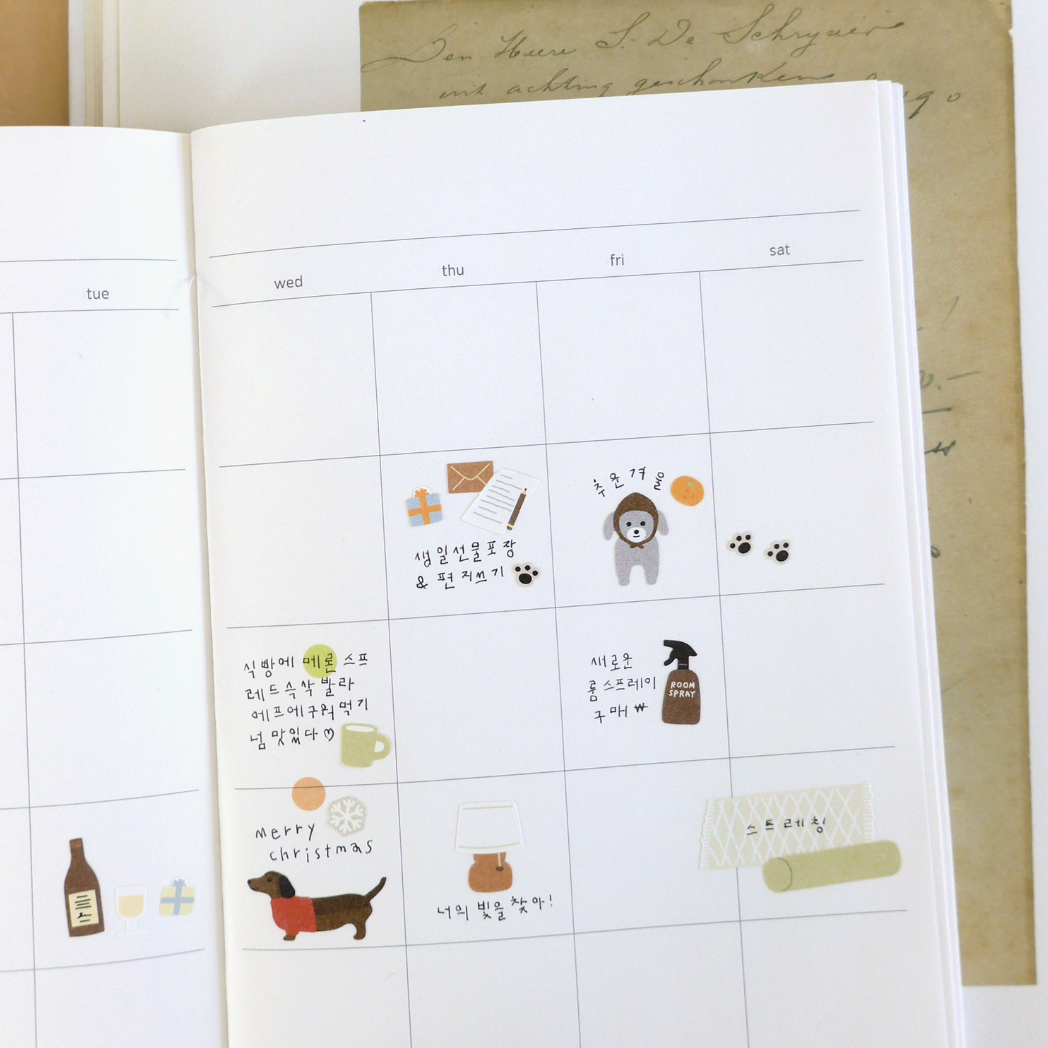 Den Heere S. De Schryver
met achting geschonken
tue
wed
thu
fri
sat
생일선물포장
& 편지쓰기
추운겨울
식빵에 메론 스프
레드 슥삭 발라
에프에구워먹기
넘 맛있다♡
새로운
룸스프레이
구매 ₩
ROOM
SPRAY
merry
christmas
너의 빛을 찾아!
스트레칭